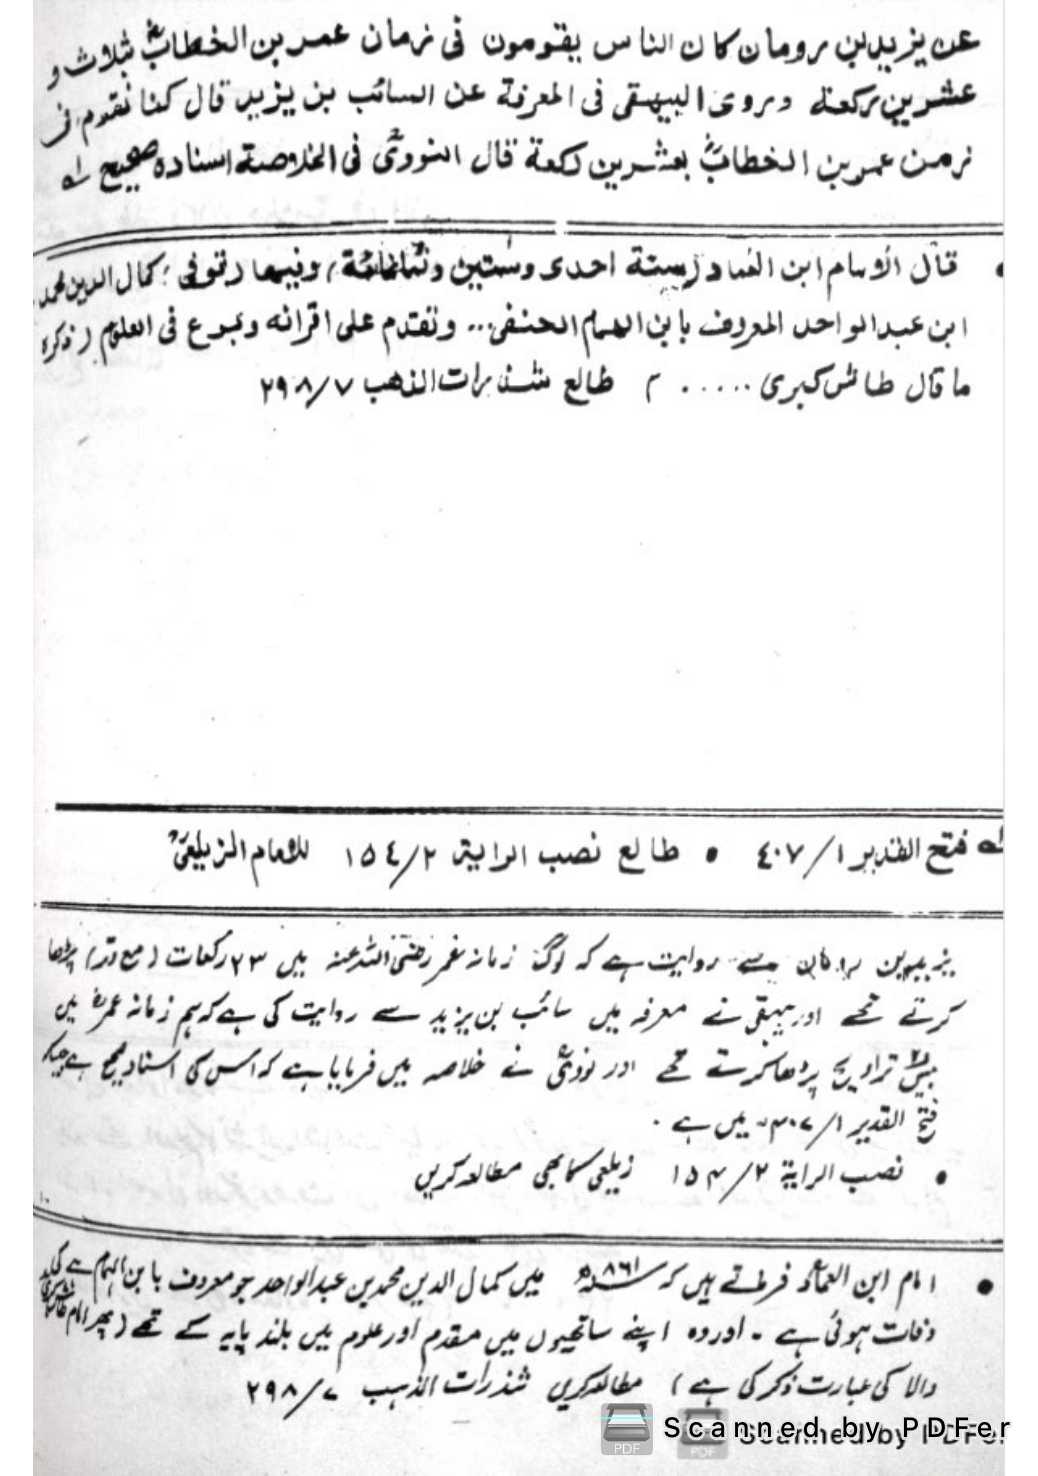 عن يزيد بن رومان كان الناس يقومون فى زمان عمر بن الخطابؓ بثلاث و
عشرين ركعة وروى البيهقى فى المعرفة عن السائب بن يزيد قال كنا نقوم فى
زمن عمر بن الخطابؓ بعشرين ركعة قال النووىؒ فى الخلاصة اسناده صحيح لـه
• قال الامام ابن العماد (سنة احدى وستين وثمانمائة) وفيها (توفى) كمال الدين محمد
ابن عبد الواحد المعروف بابن الهمام الحنفى... وتقدم على اقرانه وبرع فى العلوم (ذكره
ما قال طاش كبرى ..... ) طالع شذرات الذهب ٧/ ٢٩٨
لـه فتح القدير ١/ ٤٠٧ • طالع نصب الراية ٢/ ١٥٤ للامام الزيلعىؒ
یزید بن رومان سے روایت ہے کہ لوگ زمانہ عمر رضی اللہ عنہ میں ٢٣ رکعات (مع وتر) پڑھا
کرتے تھے اور بیہقی نے معرفہ میں سائب بن یزید سے روایت کی ہے کہ ہم زمانہ عمرؓ میں
بیس تراویح پڑھا کرتے تھے اور نووی نے خلاصہ میں فرمایا ہے کہ اس کی اسناد صحیح ہے جیسا کہ
فتح القدیر ١/ ٤٠٧ میں ہے ۔
• نصب الرایۃ ٢/ ١٥٤ زیلعی کا بھی مطالعہ کریں
• امام ابن العمادؒ فرماتے ہیں کہ ٨٦١ھ میں کمال الدین محمد بن عبد الواحد جو معروف بابن الہمام ہے کی
وفات ہوئی ہے ۔ اور وہ اپنے ساتھیوں میں مقدم اور علوم میں بلند پایہ کے تھے (پھر امام طاش کبری
والا کی عبارت ذکر کی ہے) مطالعہ کریں شذرات الذہب ٧/ ٢٩٨
Scanned by PDFer
Scanned by PDFer